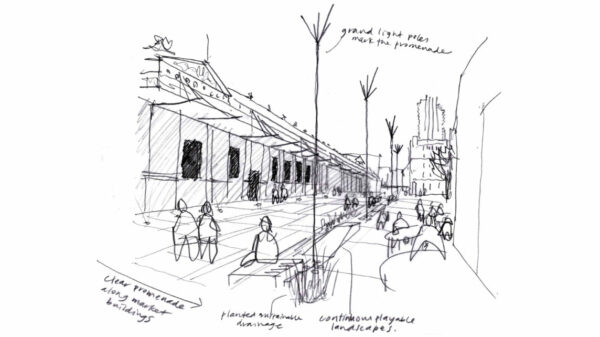 grand light poles
mark the promenade
clear promenade
along market
buildings
planted sustainable
drainage
continuous playable
landscapes.